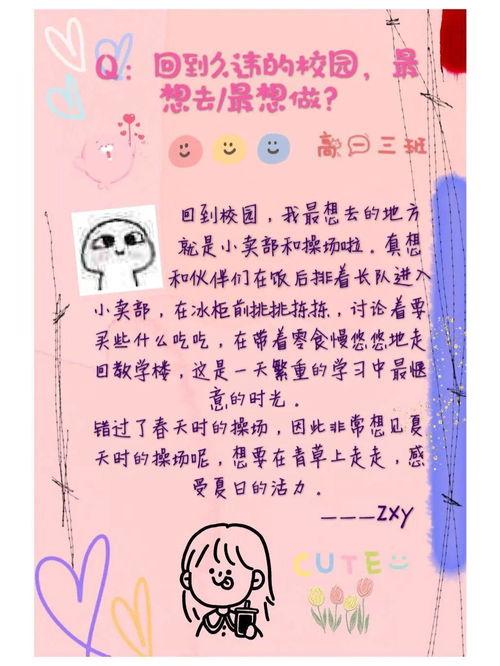 Q：回到久违的校园，最
想去/最想做？
高一三班
回到校园，我最想去的地方
就是小卖部和操场啦。真想
和伙伴们在饭后排着长队进入
小卖部，在冰柜前挑挑拣拣，讨论着要
买些什么吃吃，在带着零食慢悠悠地走
回教学楼，这是一天繁重的学习中最惬
意的时光。
错过了春天时的操场，因此非常想见夏
天时的操场呢，想要在青草上走走，感
受夏日的活力。
___ZXY
CUTE